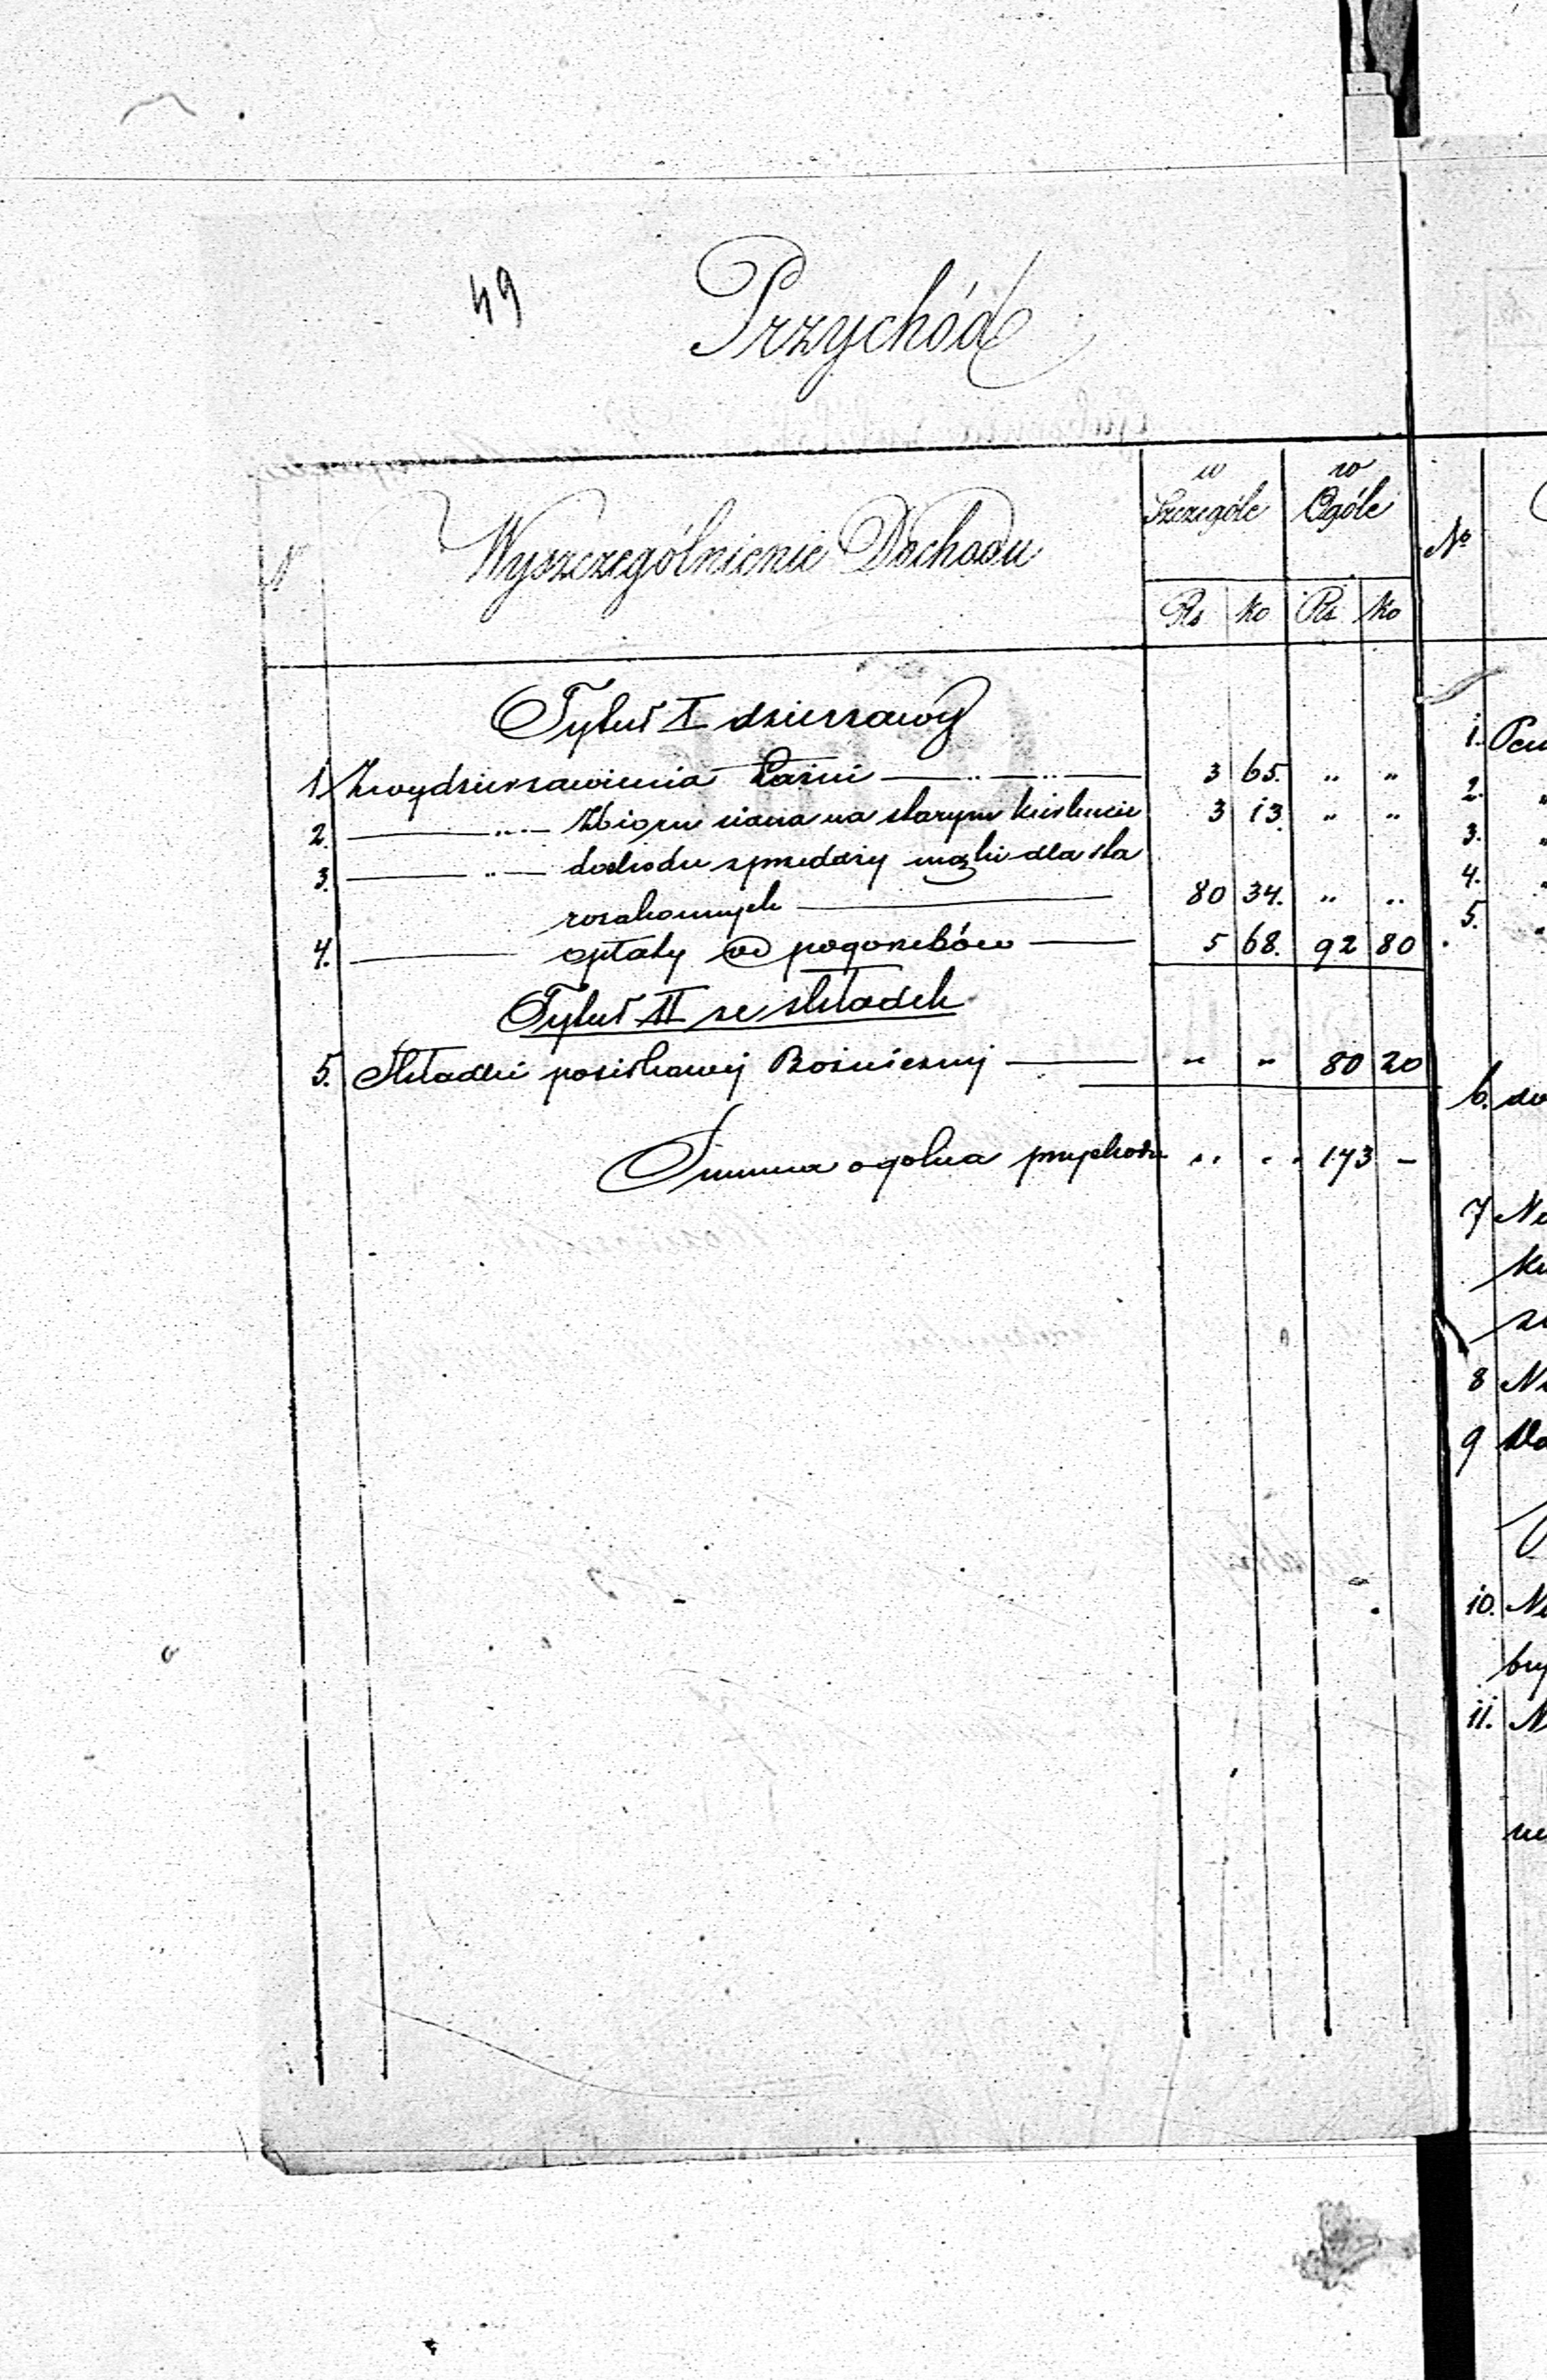 49
Przychód
N
Wyszczególnienie Dochodu
w Szczególe
w Ogóle
Rs ko Rs ko
Tytuł I dzierzawy
1. Z wydzierzawienia Łaźni 3 65. " "
2. " Zbioru siana na starym kirkucie 3 13. " "
3. " dochodu sprzedaży mąki dla sta
rozakonnych 80 34. " "
4. opłaty od pogrzebów 5 68. 92 80
Tytuł II ze składek
5. Składki posiłkowej Bożniczny " " 80 20
Summa ogolna przychodu " " 173 –
№
1.
2. "
3. "
4. "
5. "
6. do
7 Na
8 Na
9
10. Na
11. N